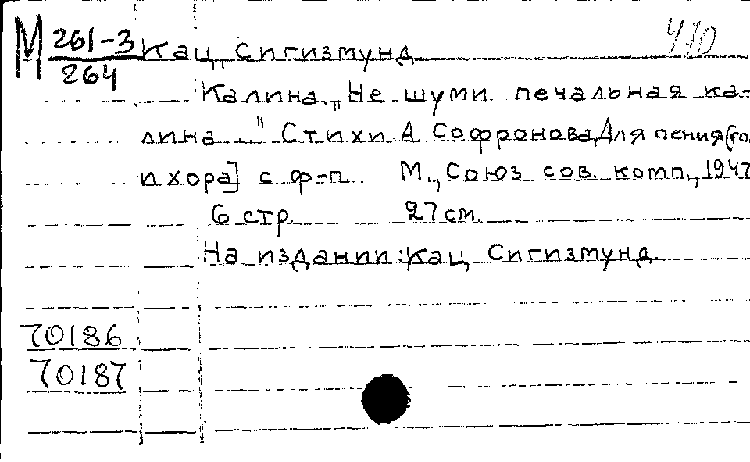 М 261-3 Кац, Сигизмунд 410
264
Калина „Не шуми печальная ка-
лина..." Стихи А Софронова. Для пения [го
и хора] с ф-п. М., Союз сов. комп., 1947
6 стр. 27 см.
На издании: Кац, Сигизмунд.
70186
70187